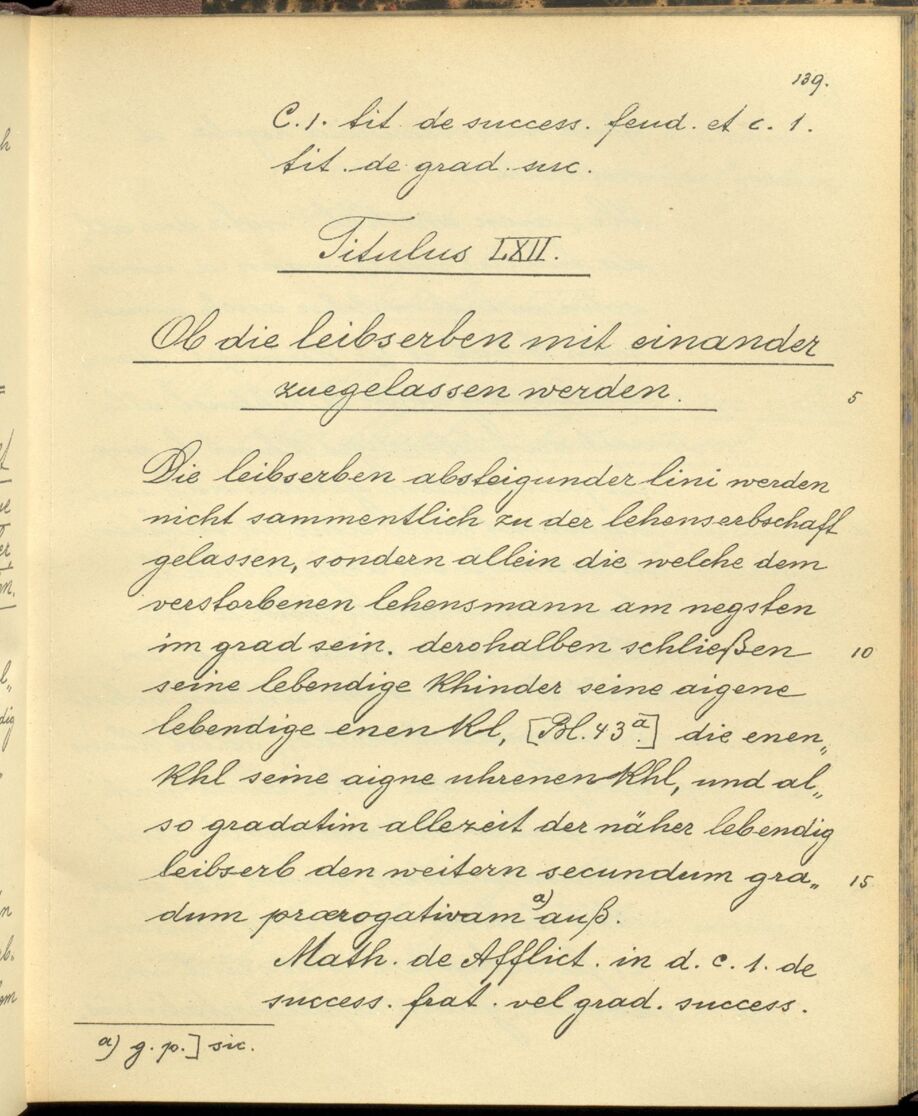 139.
C. 1. tit. de success. feud. et c. 1.
tit. de grad. suc.
Titulus LXII.
Ob die leibserben mit einander
zuegelassen werden. 5
Die leibserben absteigunder lini werden
nicht sammentlich zu der lehenserbschaft
gelassen, sondern allein die welche dem
verstorbenen lehensmann am negsten
im grad sein. derohalben schließen 10
seine lebendige khinder seine aigene
lebendige enenkl, [Bl. 43a.] die enen„
khl seine aigne uhrenenkhl, und al„
so gradatim allezeit der näher lebendig
leibserb den weitern secundum gra„ 15
dum prærogativam a) auß.
Math. de Afflict. in d. c. 1. de
success. frat. vel grad. success.
a) g. p.] sic.